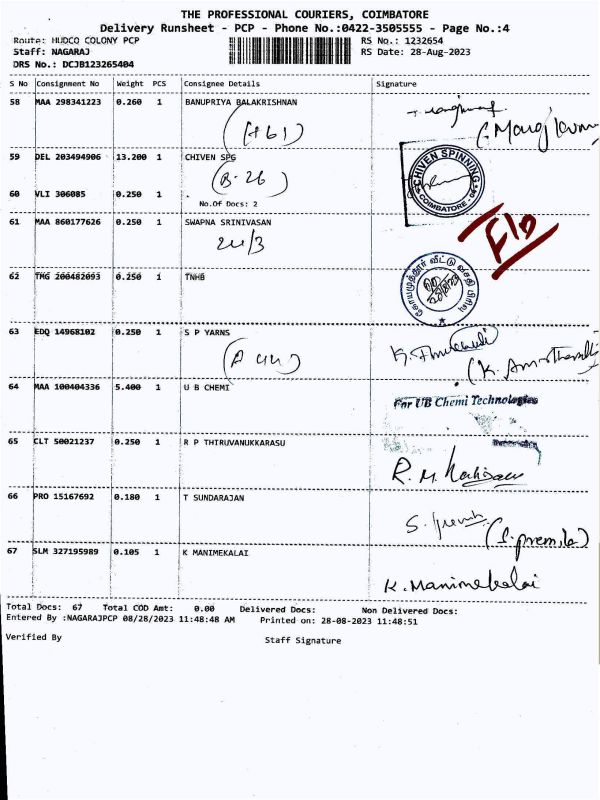 THE PROFESSIONAL COURIERS, COIMBATORE
Delivery Runsheet - PCP - Phone No.:0422-3505555 - Page No.:4
Route: HUDCO COLONY PCP RS No.: 1232654
Staff: NAGARAJ RS Date: 28-Aug-2023
DRS No.: DCJB123265404
S No Consignment No Weight PCS Consignee Details Signature
58 MAA 298341223 0.260 1 BANUPRIYA BALAKRISHNAN
59 DEL 203494906 13.200 1 CHIVEN SPG
(B-26)
CHIVEN SPINNING
COIMBATORE
60 VLI 306085 0.250 1
No.Of Docs: 2
61 MAA 860177626 0.250 1 SWAPNA SRINIVASAN
62 TMG 200482093 0.250 1 TNHB
கோயமுத்தூர் வீட்டு வசதி பிரிவு
63 EDQ 14968102 0.250 1 S P YARNS
64 MAA 100404336 5.400 1 U B CHEMI
For UB Chemi Technologies
65 CLT 50021237 0.250 1 R P THIRUVANUKKARASU
R. M.
66 PRO 15167692 0.180 1 T SUNDARAJAN
(S. premila)
67 SLM 327195989 0.105 1 K MANIMEKALAI
K. Manimekalai
Total Docs: 67 Total COD Amt: 0.00 Delivered Docs: Non Delivered Docs:
Entered By :NAGARAJPCP 08/28/2023 11:48:48 AM Printed on: 28-08-2023 11:48:51
Verified By Staff Signature